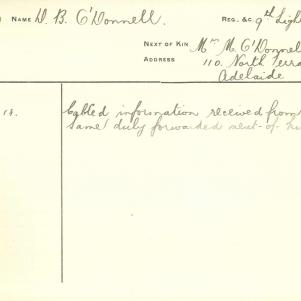 NAME D. B. O'Donnell. REG. &C. 9th Ligh
NEXT OF KIN Mrs M. O'Donnel
ADDRESS 110. North Terra
Adelaide
18. Cabled information received from
same duly forwarded next-of-k